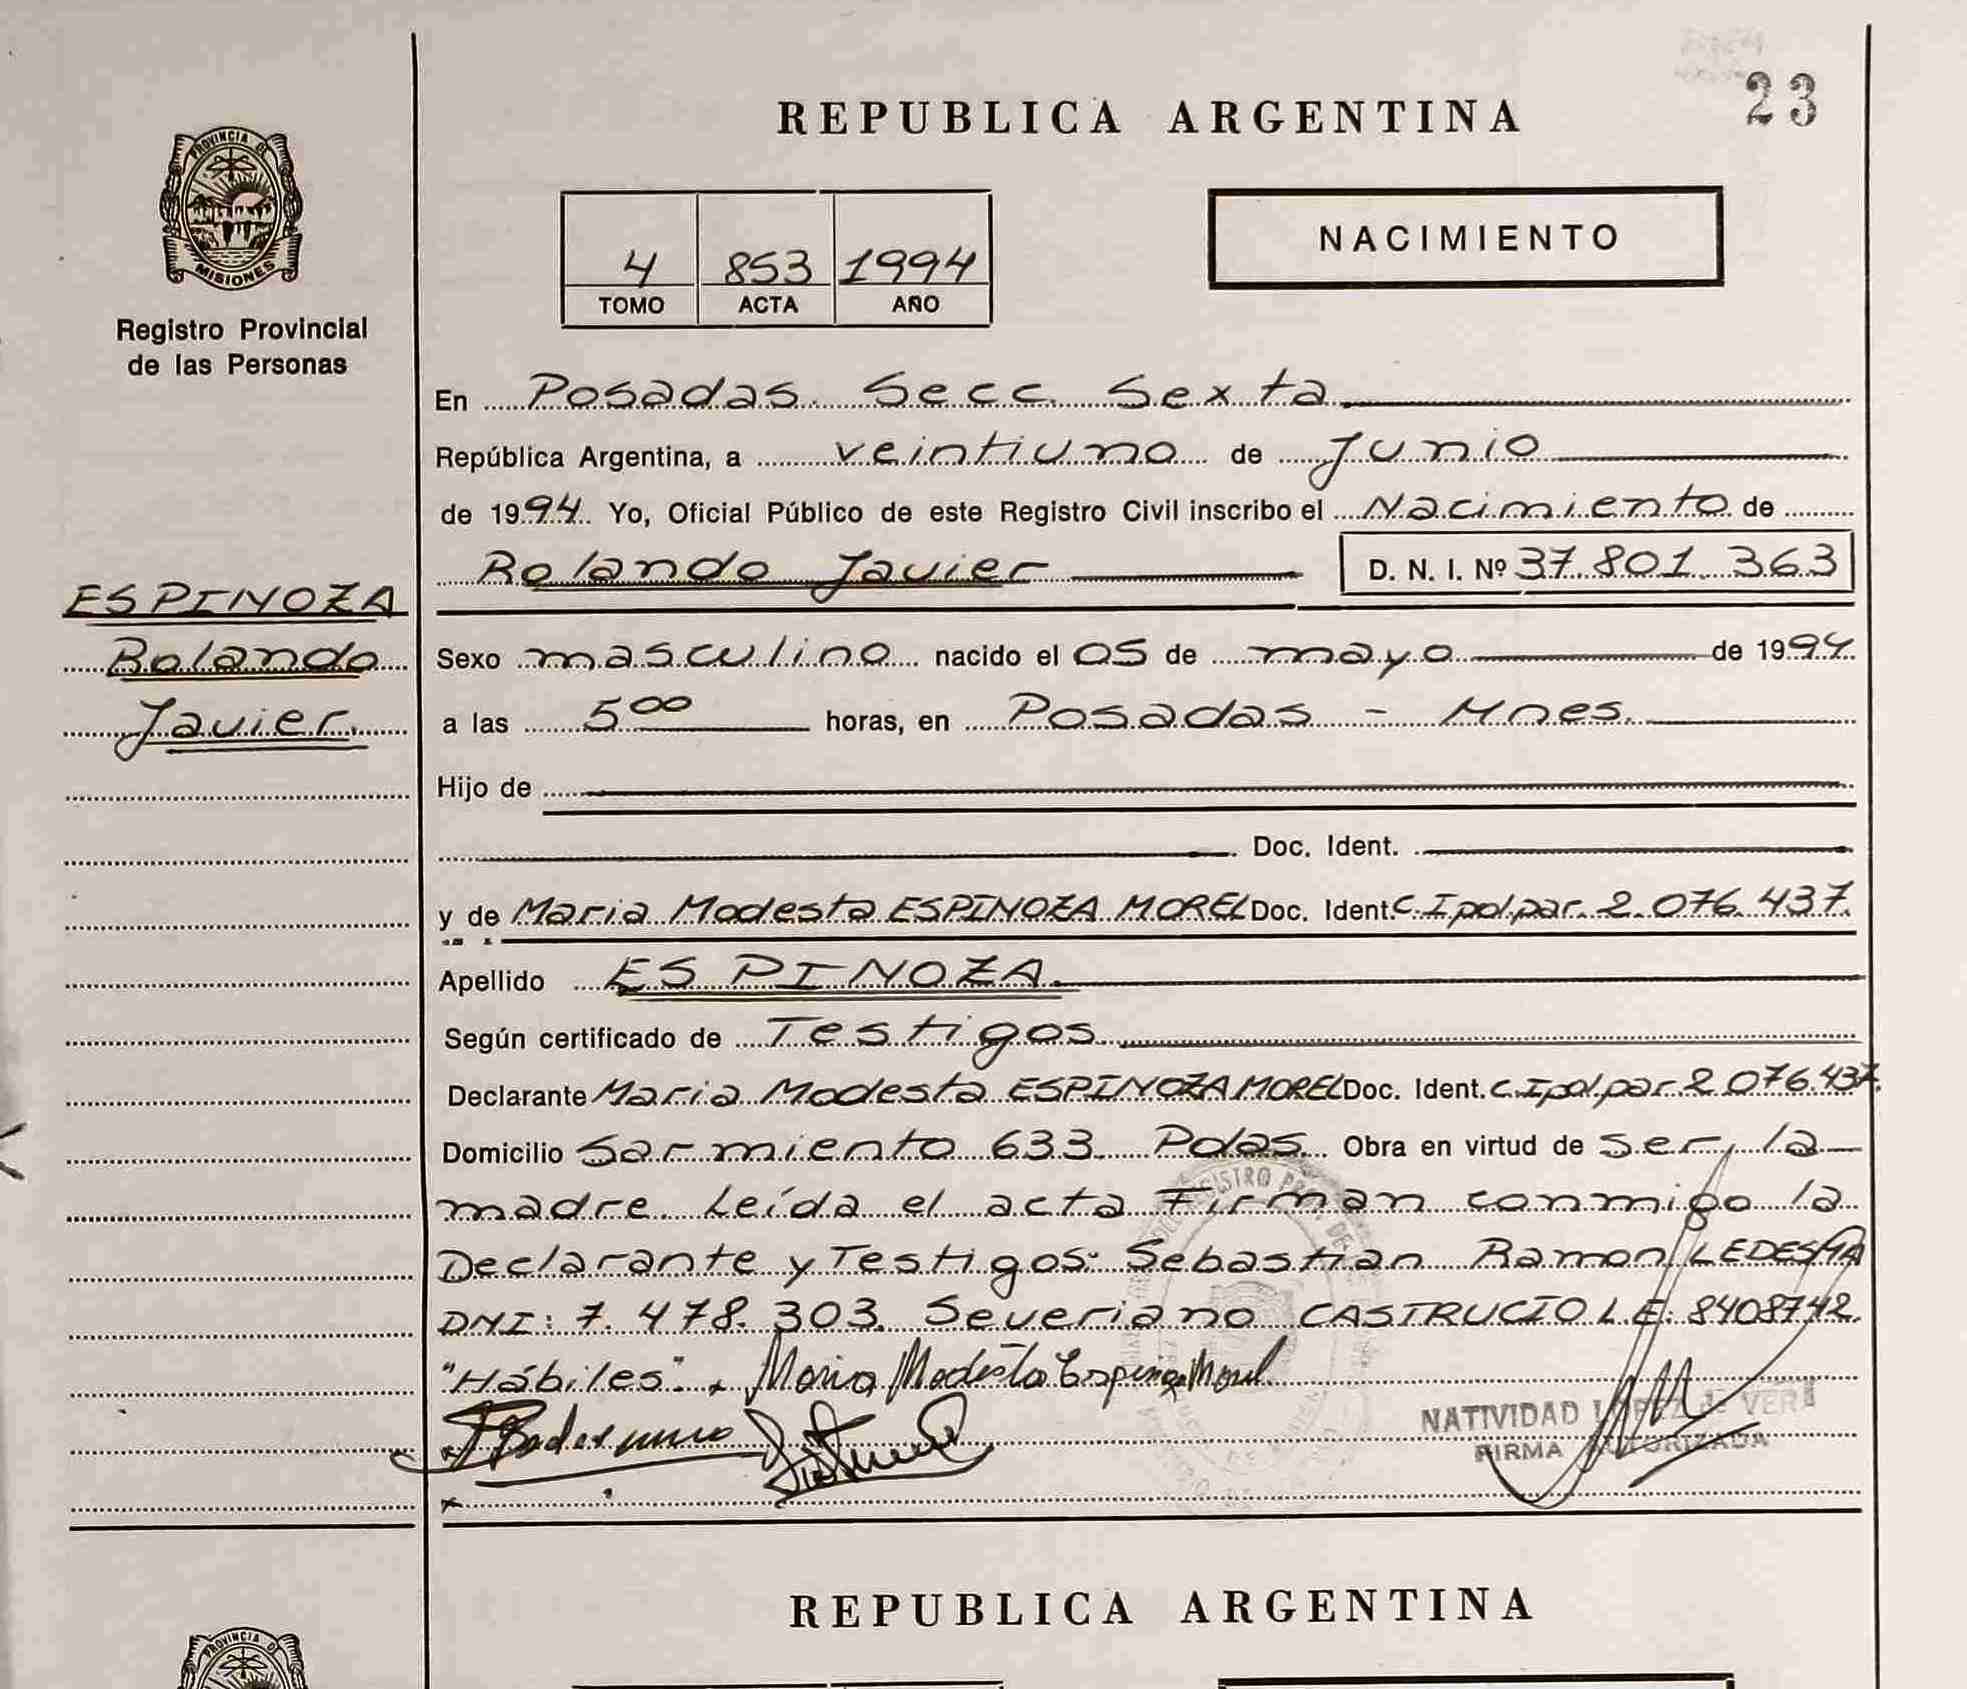 23
REPUBLICA ARGENTINA
PROVINCIA DE
MISIONES
Registro Provincial
de las Personas
4 853 1994
TOMO ACTA AÑO
NACIMIENTO
En Posadas. Secc. Sexta
República Argentina, a veintiuno de Junio
de 1994. Yo, Oficial Público de este Registro Civil inscribo el Nacimiento de
Rolando Javier D. N. I. Nº 37.801.363
ESPINOZA
Rolando
Javier.
Sexo masculino nacido el 05 de mayo de 1994.
a las 5 00 horas, en Posadas - Mnes.
Hijo de
Doc. Ident.
y de Maria Modesta ESPINOZA MOREL Doc. Ident. C.Ipol.par. 2.076.437.
Apellido ESPINOZA.
Según certificado de Testigos
Declarante Maria Modesta ESPINOZA MOREL Doc. Ident. C.Ipol.par. 2.076.437.
Domicilio Sarmiento 633. Pdas. Obra en virtud de ser, la
madre. Leída el acta Firman conmigo la
Declarante y Testigos: Sebastian Ramon LEDESMA
DNI: 7.478.303. Severiano CASTRUCIO L.E: 8408742.
"Hábiles". Maria Modesta Espinoza Morel
NATIVIDAD LOPEZ de VERA
FIRMA AUTORIZADA
REPUBLICA ARGENTINA
PROVINCIA DE